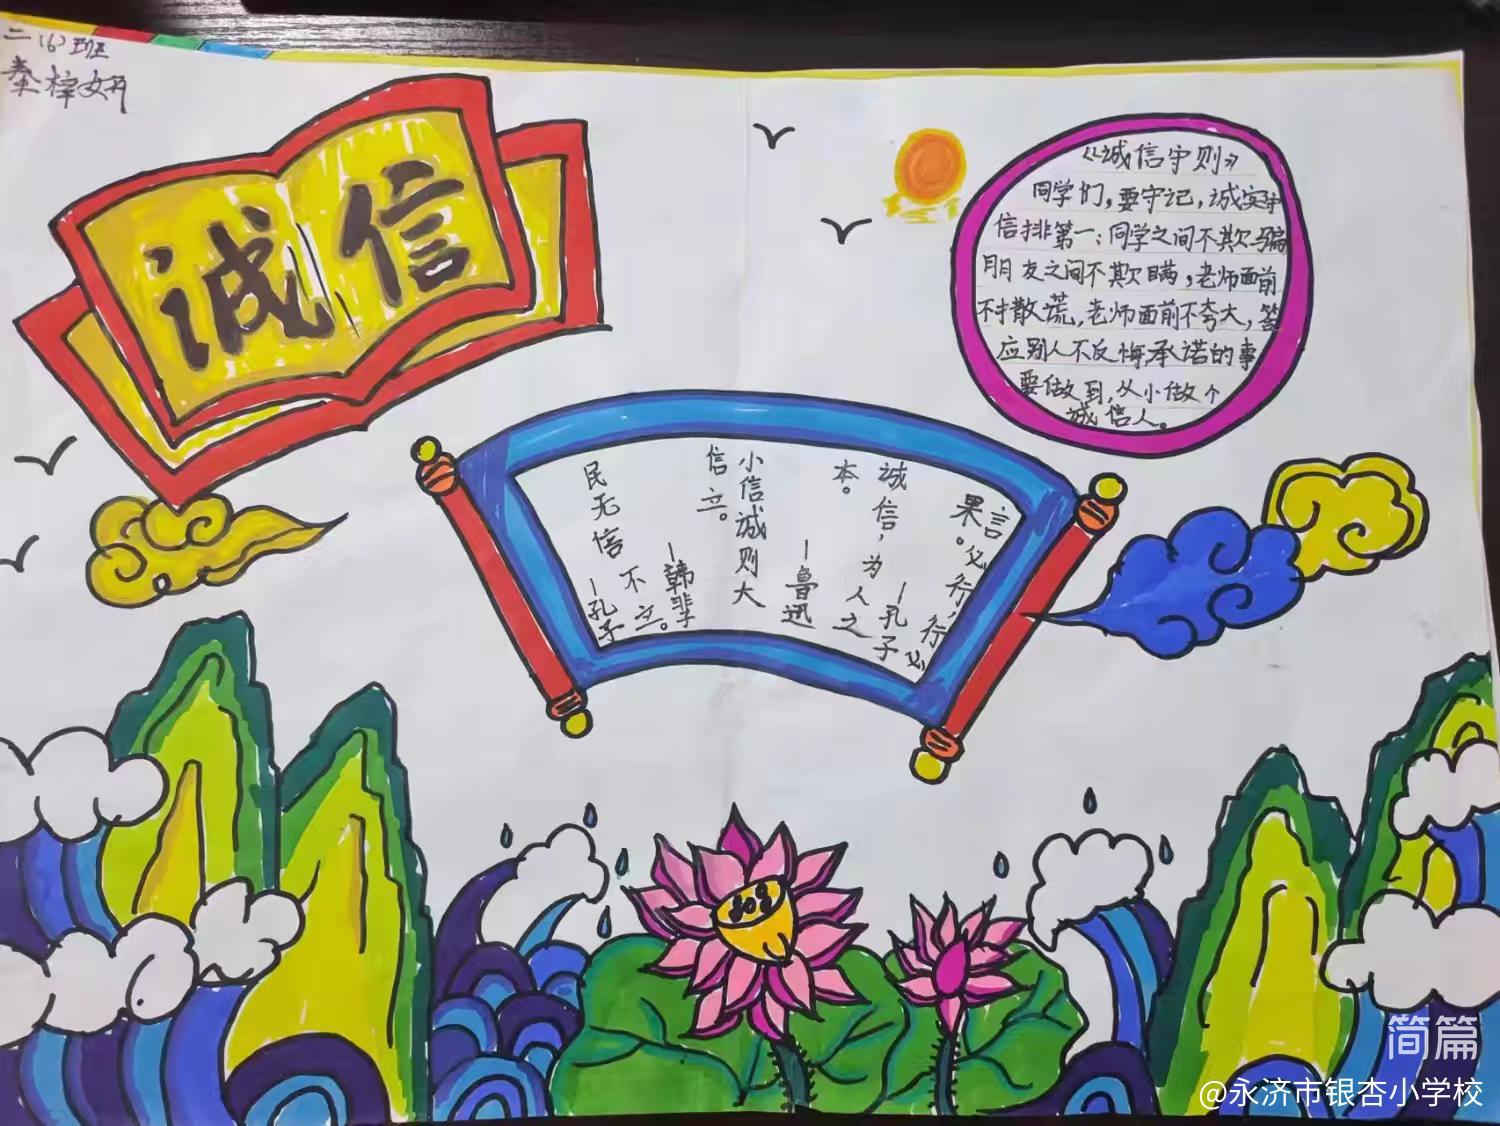 二(6)班
秦梓妍
诚信
《诚信守则》
同学们，要守记，诚实守
信排第一：同学之间不欺骗
朋友之间不欺瞒，老师面前
不扌散谎，老师面前不夸大，答
应别人不反悔承诺的事
要做到，从小做个
诚信人。
言必行，行必
果。
—孔子
诚信，为人之
本。
—鲁迅
小信诚则大
信立。
—韩非
民无信不立。
—孔子
简篇
@永济市银杏小学校